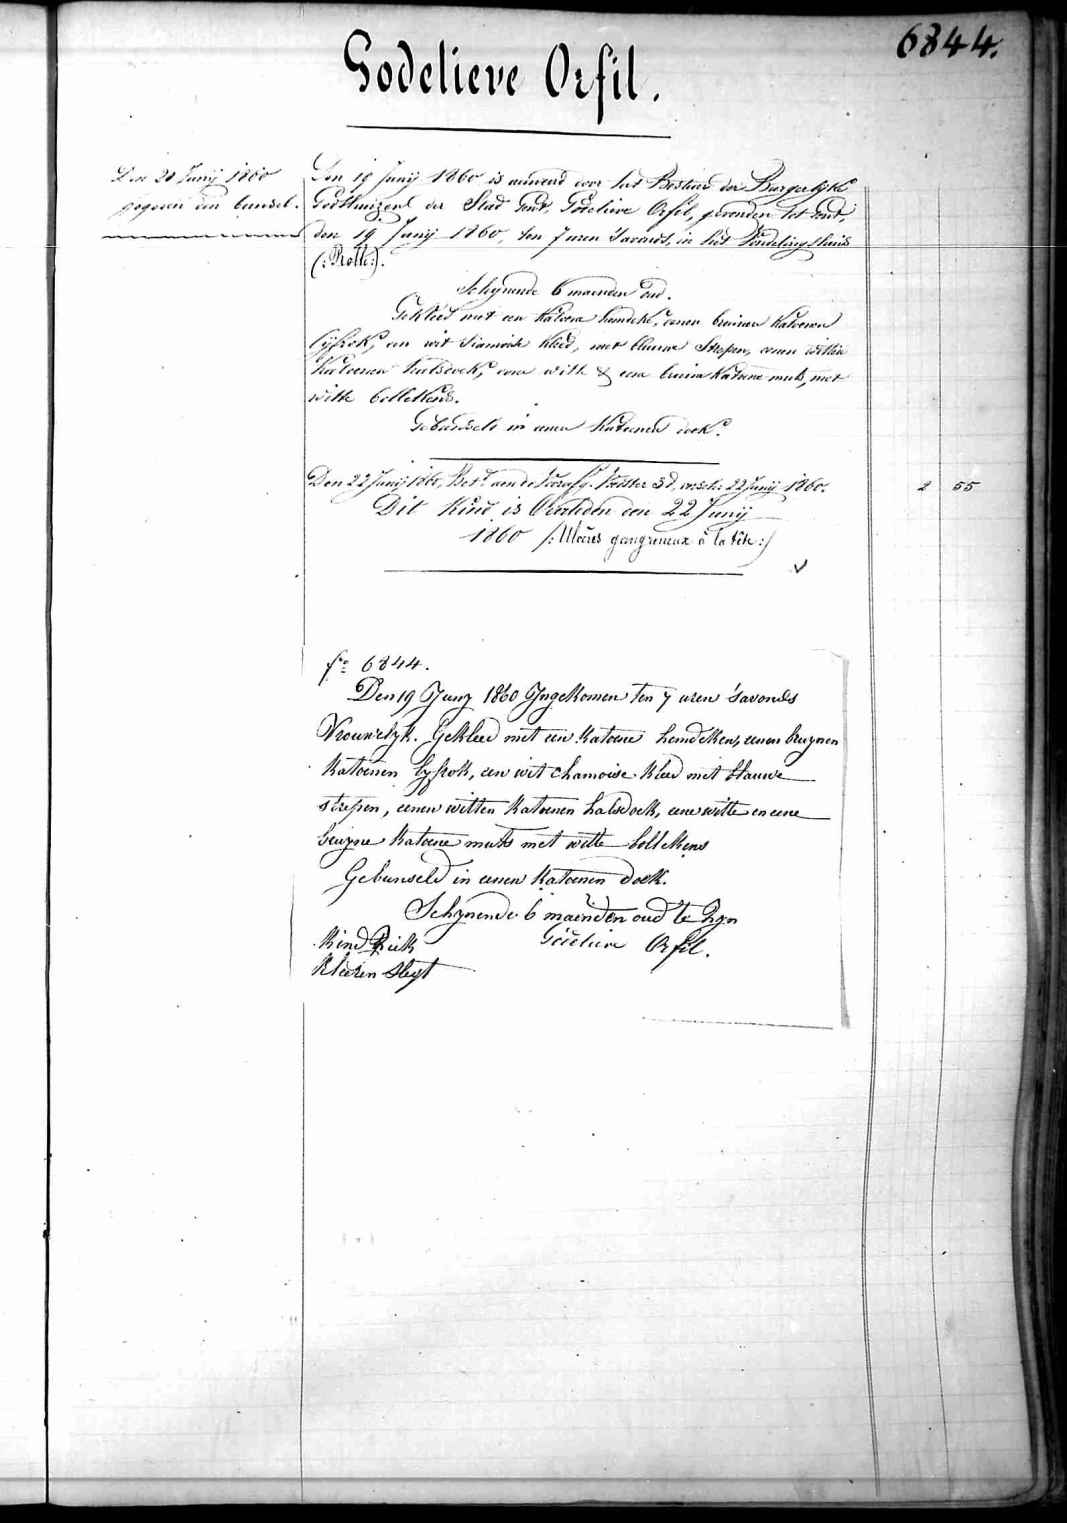 6844.
Godelieve Orfil.
Den 20 Junij 1860
gegeven een bunsel.
Den 19 Junij 1860 is aenveerd door het Bestuur der Burgerlijke
Godshuizen der Stad Gent, Godelieve Orfil, gevonden tot Gent,
den 19 Junij 1860, ten 7 uren 's avonds, in het Vondelingshuis
(:Rolle:).
Schijnende 6 maenden oud.
Gekleed met een katoene hemdeke, eenen bruinen katoenen
lijfrok, een wit siamoise kleed, met blauwe strepen, eenen witten
katoenen halsdoek, eene witte & eene bruine katoene muts, met
witte bollekens.
Gebunseld in eenen katoenen doek.
Den 22 Junij 1860, Bet. aen de 22 Junij 1860. 2 55
Dit Kind is Overleden den 22 Junij
1860 /:Ulcères gangreneux à la tête:/
fo 6844.
Den 19 Juny 1860 Yngekomen ten 7 uren 's avonds
Vrouwelyk. Gekleed met een katoene hemdeken, eenen bruynen
katoenen lyfrok, een wit chamoise kleed met blauwe
strepen, eenen witten katoenen halsdoek, eene witte en eene
bruyne katoene muts met witte bollekens
Gebunseld in eenen katoenen doek.
Schynende 6 maenden oud te zyn
Kind Ziek Godelieve Orfil.
Kleeren slegt